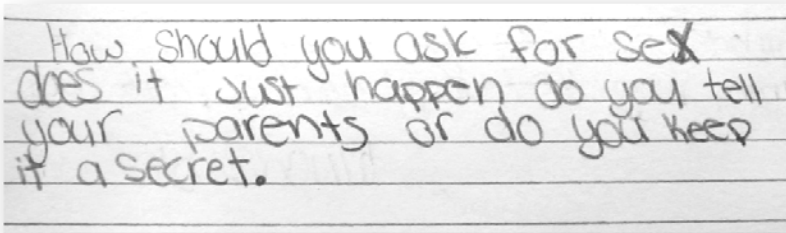 How should you ask for sex
does it Just happen do you tell
your parents or do you keep
it a secret.